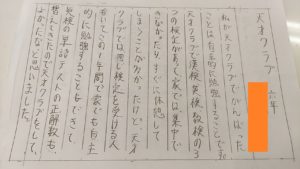 天才クラブ
六年
私が天才クラブでがんばった
ことは自主的に勉強することです。
天才クラブで漢検、英検、数検の3
つの検定があって家では、集中で
きなかったり、すぐに休憩して
しまうことが多かったけど、天才
クラブでは同じ検定を受ける人
もいてこの一年間で家でも自主
的に勉強することもできて、
英検の単語テストの正解数も
増えてきたので天才クラブをして、
よかったなと思いました。